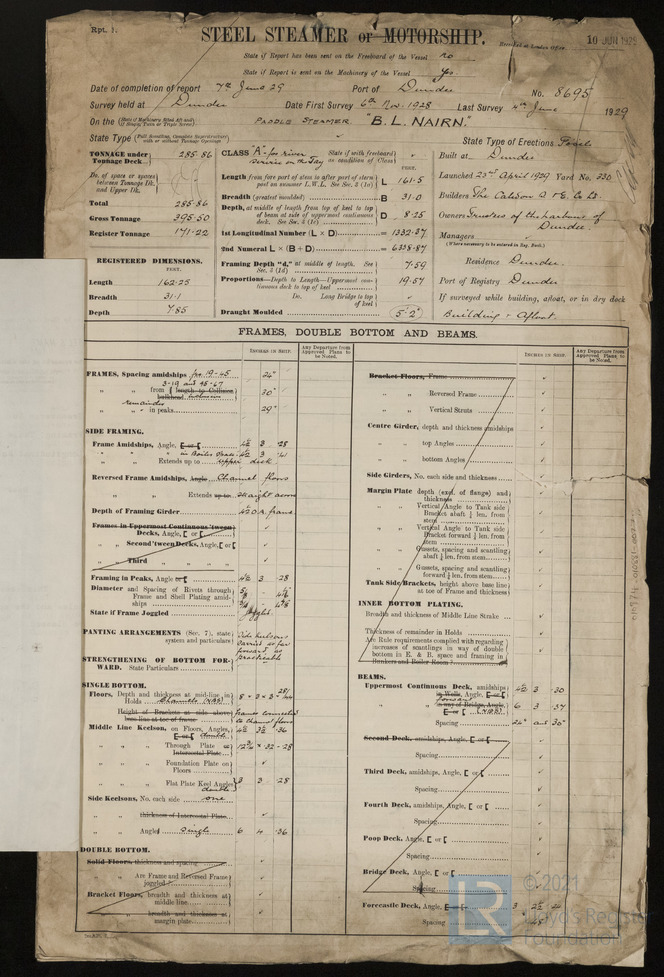 Rpt. 1.
STEEL STEAMER or MOTORSHIP.
Received at London Office 10 JUN 1929
State if Report has been sent on the Freeboard of the Vessel no
State if Report is sent on the Machinery of the Vessel Yes
Date of completion of report 7th June 29 Port of Dundee No. 8695
Survey held at Dundee Date First Survey 6th Nov. 1928 Last Survey 4th June 1929
On the PADDLE STEAMER "B. L. NAIRN."
State Type
State Type of Erections
TONNAGE under Tonnage Deck 285.86
Do. of space or spaces between Tonnage Dk. and Upper Dk.
Total 285.86
Gross Tonnage 395.50
Register Tonnage 171.22
REGISTERED DIMENSIONS.
FEET.
Length 162.25
Breadth 31.1
Depth 7.85
CLASS "A" for river service on the Tay
State if with freeboard as condition of Class
FEET.
Length from fore part of stem to after part of stern post on summer L.W.L. See Sec. 2 (1a) L 161.5
Breadth (greatest moulded) B 31.0
Depth, at middle of length from top of keel to top of beam at side of uppermost continuous deck. See Sec. 2 (1c) D 8.25
1st Longitudinal Number (L × D) = 1332.37
2nd Numeral L × (B + D) = 6338.87
Framing Depth "d," at middle of length. See Sec. 2 (1d) 7.59
Proportions—Depth to Length—Uppermost continuous deck to top of keel 19.57
Do. Long Bridge to top of keel
Draught Moulded 5'2"
Built at Dundee
Launched 23rd April 1929 Yard No. 330
Builders The Caledon S & E. Co Ld.
Owners Trustees of the harbour of Dundee.
Managers
(Where necessary to be entered in Reg. Book.)
Residence Dundee.
Port of Registry Dundee
If surveyed while building, afloat, or in dry dock
Building & Afloat.
FRAMES, DOUBLE BOTTOM AND BEAMS.
INCHES IN SHIP.
Any Departure from Approved Plans to be Noted.
INCHES IN SHIP.
Any Departure from Approved Plans to be Noted.
FRAMES, Spacing amidships for 19-45 24"
3-19 and 45-67
" " from length to Collision bulkhead 30"
remainder
" " in peaks 29"
SIDE FRAMING.
Frame Amidships, Angle, [ or [ 4½ 3 .28
" " in Boiler Space
" Extends up to upper deck.
Reversed Frame Amidships, Angle Channel floors
" " Extends up to straight across
Depth of Framing Girder
Frames in Uppermost Continuous 'tween Decks, Angle, [ or [
" Second 'tween Decks, Angle, [ or [
" Third " "
Framing in Peaks, Angle or [ 4½ 3 .28
Diameter and Spacing of Rivets through Frame and Shell Plating amidships
State if Frame Joggled
PANTING ARRANGEMENTS (Sec. 7), state system and particulars
Side keelsons carried as far forward as practicable
STRENGTHENING OF BOTTOM FORWARD. State Particulars
SINGLE BOTTOM.
Floors, Depth and thickness at mid-line in Holds
Height of Brackets at side above base line at toe of frame
Middle Line Keelson, on Floors, Angles, [ or [ double 4½ 3½ .36
" " Through Plate or Intercostal Plate
" " Foundation Plate on Floors
" " Flat Plate Keel Angles double 3 3 .28
Side Keelsons, No. each side one
" " thickness of Intercostal Plate
" " Angles single 6 4 .36
DOUBLE BOTTOM.
Solid Floors, thickness and spacing
" " Are Frame and Reversed Frame joggled
Bracket Floors, breadth and thickness at middle line
" " breadth and thickness at margin plate
Bracket Floors, Frame
" " Reversed Frame
" " Vertical Struts
Centre Girder, depth and thickness amidships
" " top Angles
" " bottom Angles
Side Girders, No. each side and thickness
Margin Plate depth (excl. of flange) and thickness
" " Vertical Angle to Tank side Bracket abaft ¼ len. from stem
" " Vertical Angle to Tank side Bracket forward ¼ len. from stem
" " Gussets, spacing and scantling abaft ¼ len. from stem
" " Gussets, spacing and scantling forward ¼ len. from stem
Tank Side Brackets, height above base line at toe of Frame and thickness
INNER BOTTOM PLATING.
Breadth and thickness of Middle Line Strake
Thickness of remainder in Holds
Are Rule requirements complied with regarding increases of scantlings in way of double bottom in E. & B. space and framing in Bunkers and Boiler Room?
BEAMS.
Uppermost Continuous Deck, amidships in Wells, Angle, [ or [ 4½ 3 .30
" " in way of Bridge, Angle, [ or [ 6 3 .37
Spacing 24" and 30"
Second Deck, amidships, Angle, [ or [
Spacing
Third Deck, amidships, Angle, [ or [
Spacing
Fourth Deck, amidships, Angle, [ or [
Spacing
Poop Deck, Angle, [ or [
Spacing
Bridge Deck, Angle, [ or [
Spacing
Forecastle Deck, Angle, [ or [
Spacing
LR
© 2021
Lloyd's Register
Foundation